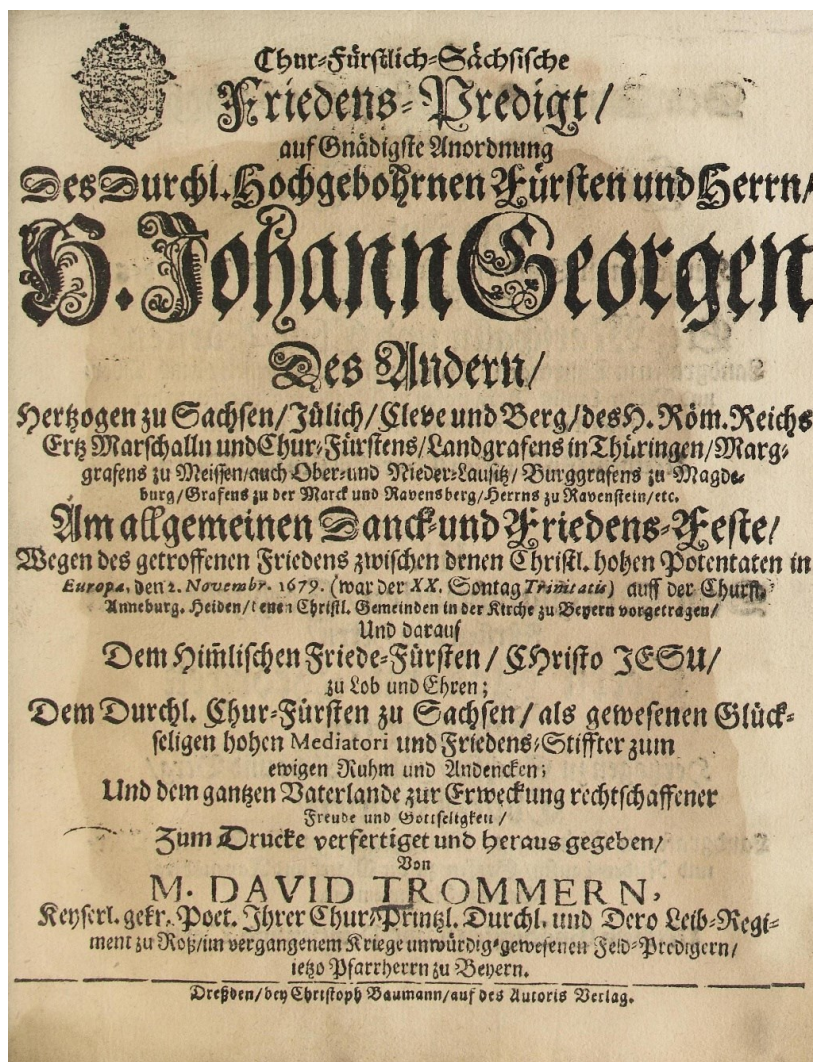 Chur-Fürstlich-Sächsische
Friedens-Predigt/
auf Gnädigste Anordnung
Des Durchl. Hochgebohrnen Fürsten und Herrn/
H. Johann Georgen
Des Andern/
Hertzogen zu Sachsen/Jülich/Cleve und Berg/des H. Röm. Reichs
Ertz Marschalln und Chur-Fürstens/Landgrafens in Thüringen/Marg-
grafens zu Meissen/auch Ober-und Nieder-Lausitz/Burggrafens zu Magde-
burg/Grafens zu der Marck und Ravensberg/Herrns zu Ravenstein/etc.
Am allgemeinen Danck-und Friedens-Feste/
Wegen des getroffenen Friedens zwischen denen Christl. hohen Potentaten in
Europa, den 2. Novembr. 1679. (war der XX. Sontag Trinitatis) auff der Churfl.
Anneburg. Heiden/denen Christl. Gemeinden in der Kirche zu Beyern vorgetragen/
Und darauf
Dem Him̃lischen Friede-Fürsten / CHristo JESU/
zu Lob und Ehren;
Dem Durchl. Chur-Fürsten zu Sachsen/als gewesenen Glück-
seligen hohen Mediatori und Friedens-Stiffter zum
ewigen Ruhm und Andencken;
Und dem gantzen Vaterlande zur Erweckung rechtschaffener
Freude und Gottseligkeit/
Zum Drucke verfertiget und heraus gegeben/
Von
M. DAVID TROMMERN,
Keyserl. gekr. Poet. Ihrer Chur-Printzl. Durchl. und Dero Leib-Regi-
ment zu Roß/im vergangenem Kriege unwürdig-gewesenen Feld-Predigern/
ietzo Pfarrherrn zu Beyern.
Dreßden/bey Christoph Baumann/auf des Autoris Verlag.